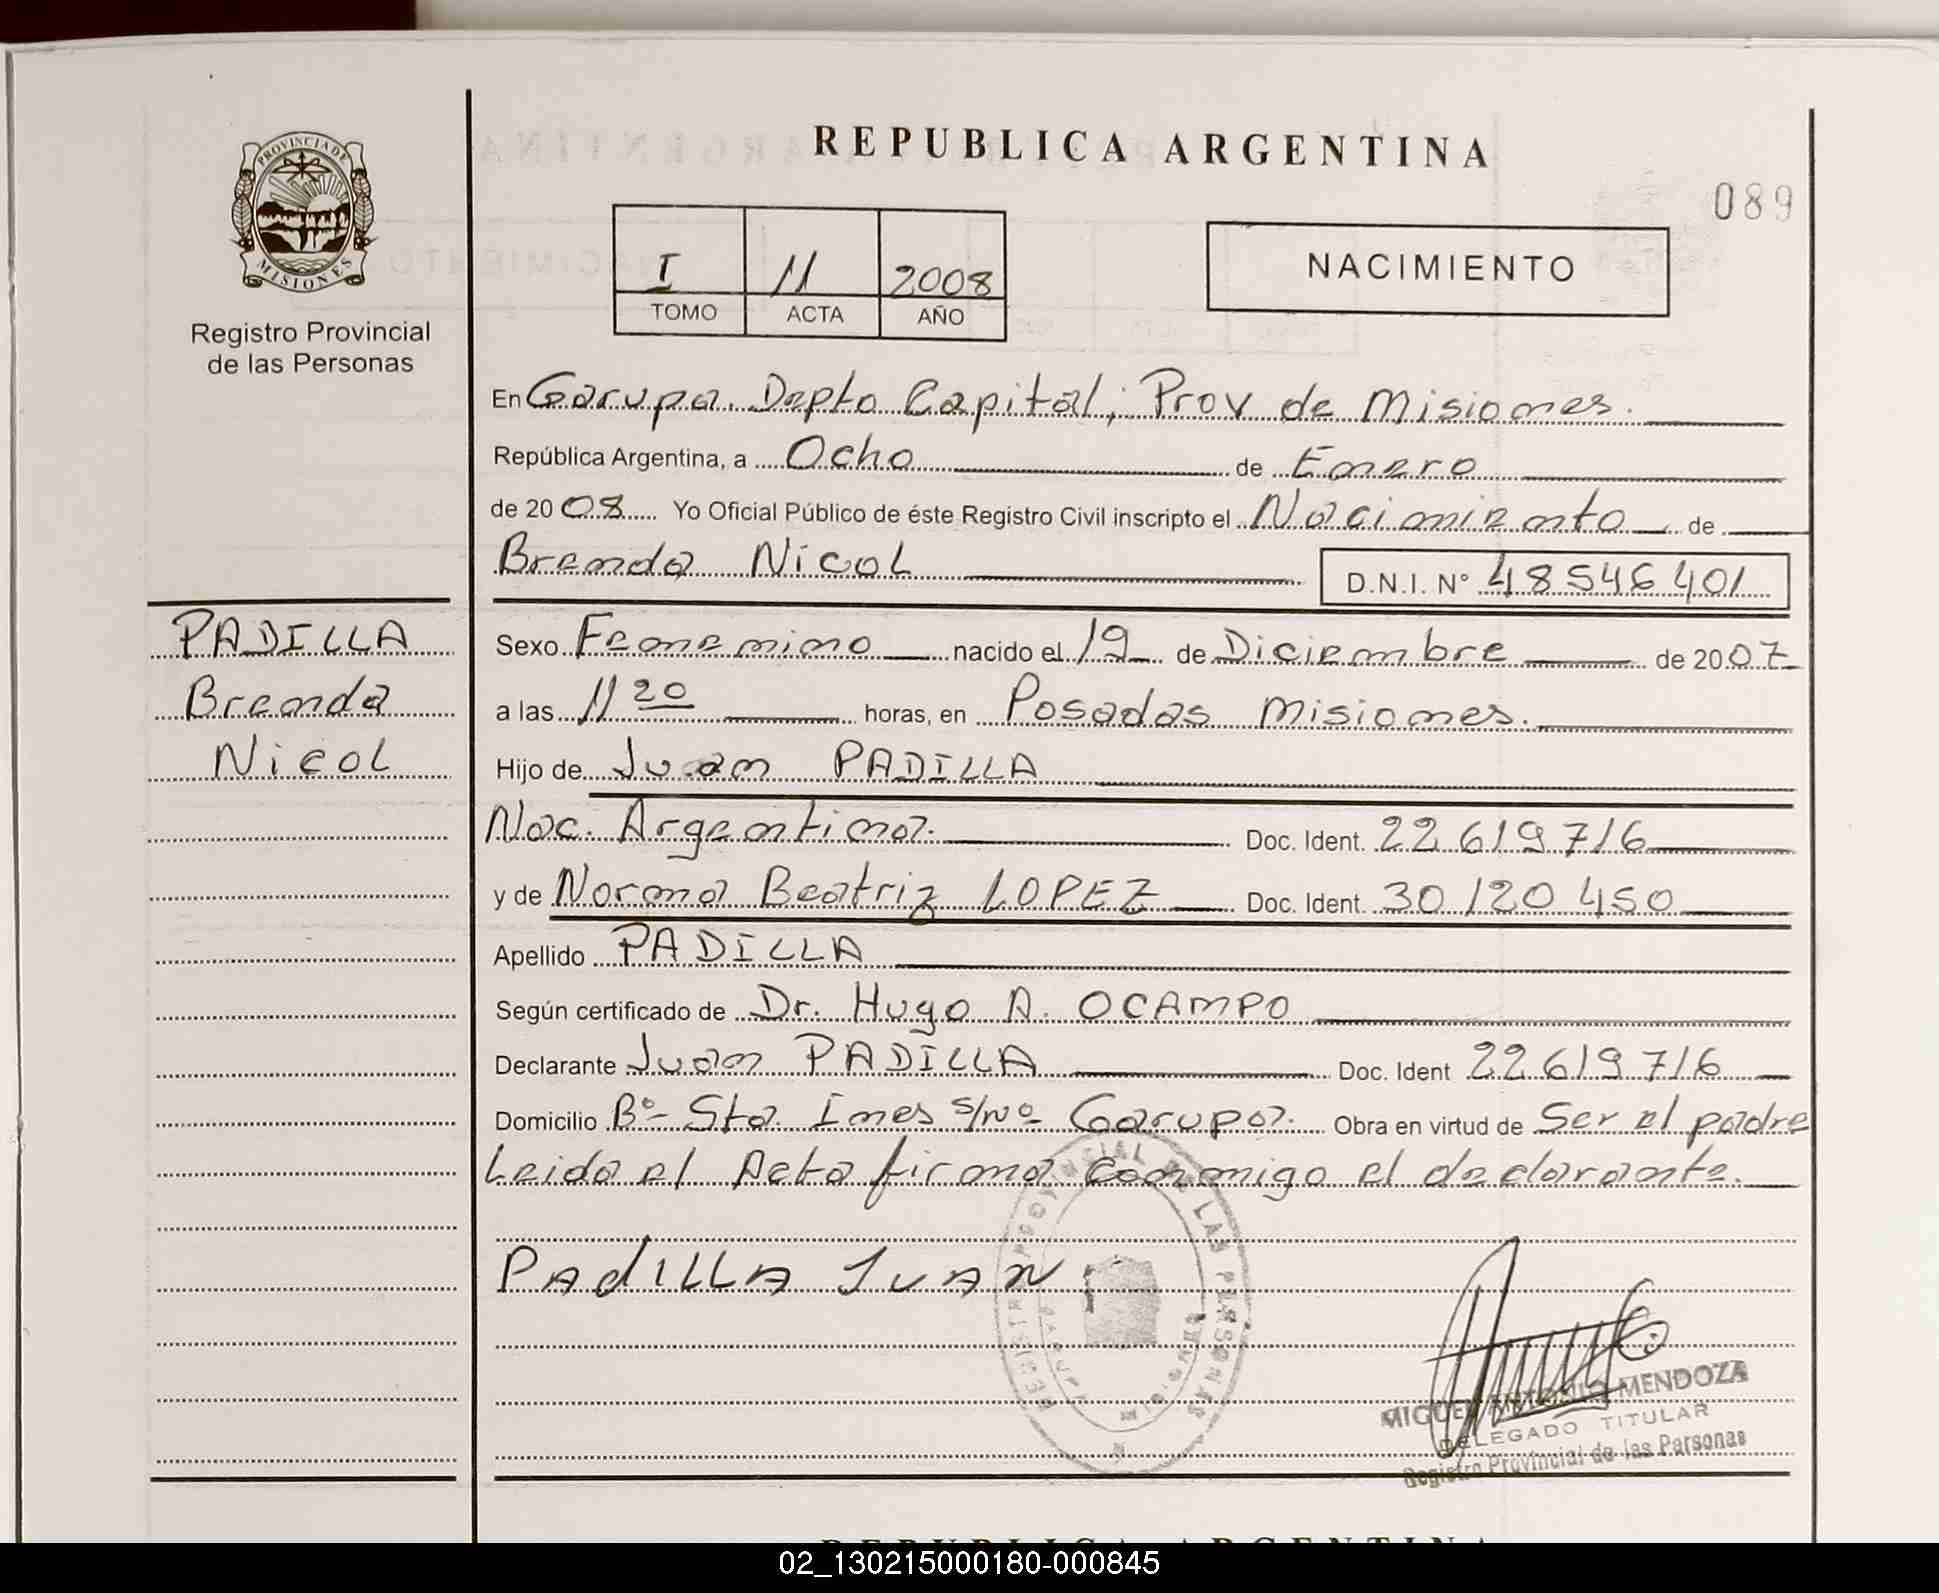 REPUBLICA ARGENTINA
089
PROVINCIA DE
MISIONES
Registro Provincial
de las Personas
I 11 2008
TOMO ACTA AÑO
NACIMIENTO
En Garupa. Depto Capital, Prov de Misiones.
República Argentina, a Ocho de Enero
de 2008 Yo Oficial Público de éste Registro Civil inscripto el Nacimiento de
Brenda Nicol D.N.I. N° 48546401
PADILLA
Brenda
Nicol
Sexo Femenino nacido el 19 de Diciembre de 2007
a las 11 20 horas, en Posadas Misiones.
Hijo de Juan PADILLA
Nac. Argentina. Doc. Ident. 22619716
y de Norma Beatriz LOPEZ Doc. Ident. 30120450
Apellido PADILLA
Según certificado de Dr. Hugo A. OCAMPO
Declarante Juan PADILLA Doc. Ident 22619716
Domicilio Bº Sta. Ines s/nº Garupa. Obra en virtud de Ser el padre
Leida el Acta firma conmigo el declarante.
PAdiLLA JUAN
REGISTRO PROVINCIAL DE LAS PERSONAS
MIGUEL ANTONIO MENDOZA
DELEGADO TITULAR
Registro Provincial de las Personas
REPUBLICA ARGENTINA
02_130215000180-000845